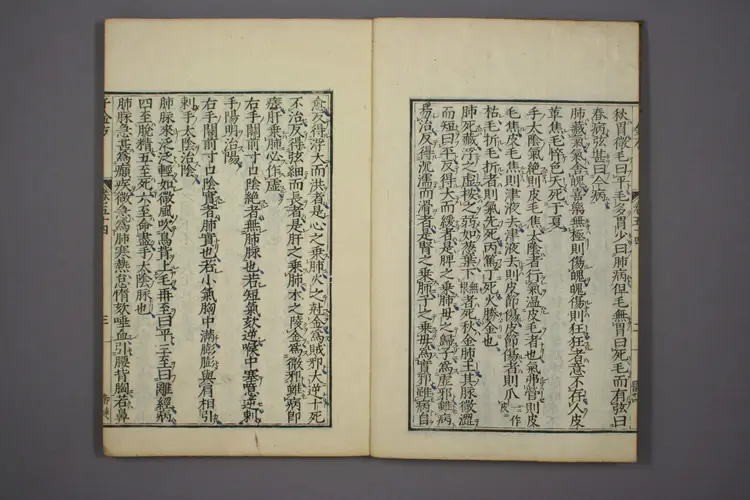 秋胃微毛曰平毛多胃少曰肺病但毛無胃曰死毛而有弦曰
春病弦甚曰今病
肺藏氣氣舍魄喜樂無極則傷魄魄傷則狂狂者意不存人皮
革焦毛悴色夭死于夏
手太陰氣絶則皮毛焦太陰者行氣溫皮毛者也氣弗營則皮
毛焦皮毛焦則津液去津液去則皮節傷皮節傷者則爪一作皮
枯毛折毛折者則氣先死丙篤丁死火勝金也
肺死藏浮之虛按之弱如葱葉下無根者死秋金肺王其脉微濇
而短曰平反得大而緩者是脾之乘肺母之歸子爲虛邪雖病
易治反得沉濡而滑者是腎之乘肺子之乘母爲實邪雖病自
愈反得浮大而洪者是心之乘肺火之尅金爲賊邪大逆十死
不治反得弦細而長者是肝之乘肺木之陵金爲微邪雖病即
瘥肝乘肺必作虛
右手關前寸口陰絶者無肺脉也苦短氣欬逆喉中塞噫逆刺
手陽明治陽
右手關前寸口陰實者肺實也若小氣胸中滿膨膨與肩相引
刺手太陰治陰
肺脉來泛泛輕如微風吹鳥背上毛再至曰平三至曰離經病
四至脫精五至死六至命盡手太陰脉也
肺脉急甚爲癲疾微急爲肺寒熱怠惰欬唾血引腰背胸若鼻